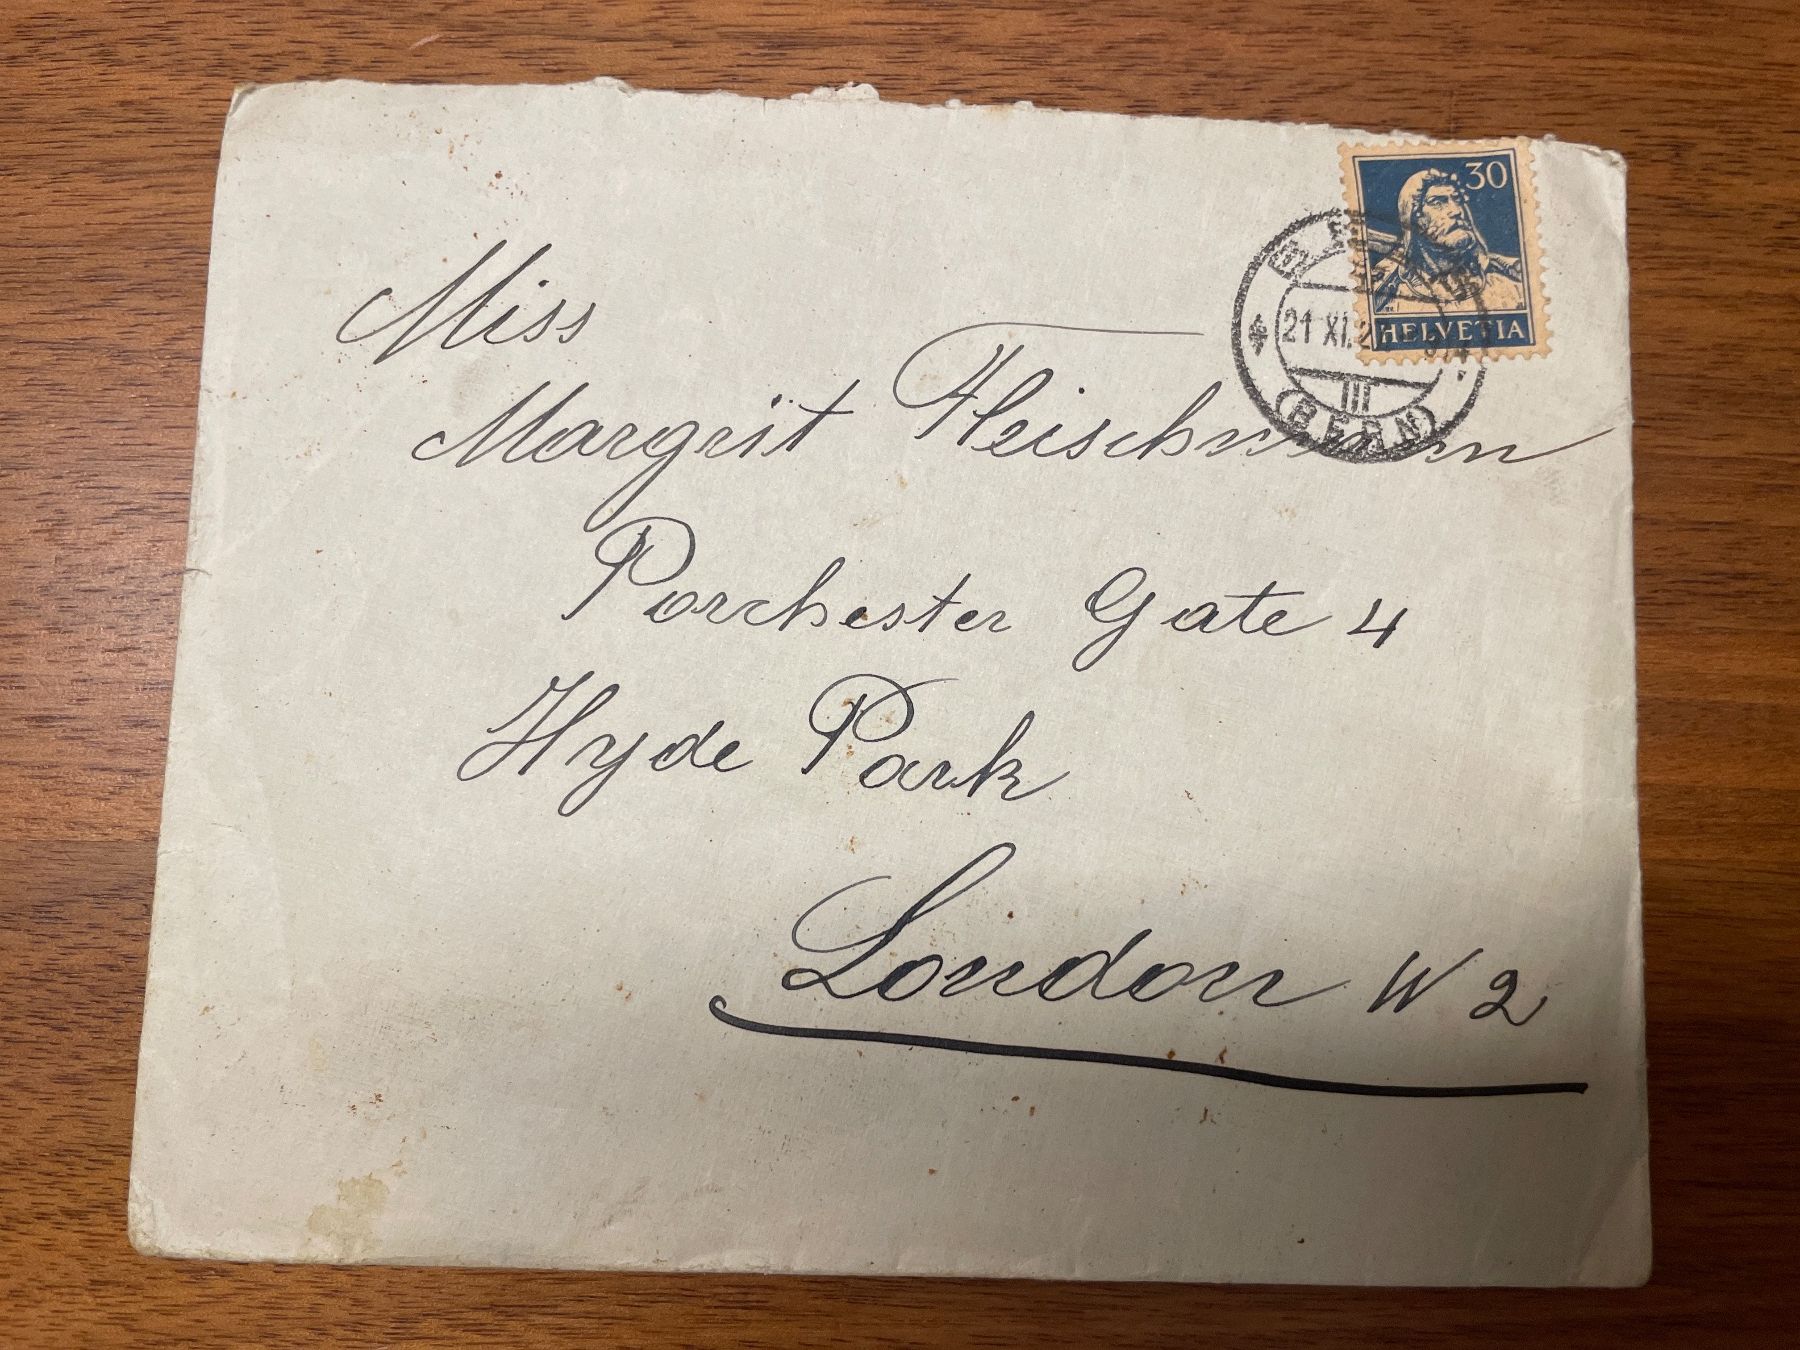 30
HELVETIA
21 XI.2
III
(BERN)
Miss
Margrit Fleischmann
Porchester Gate 4
Hyde Park
London W 2